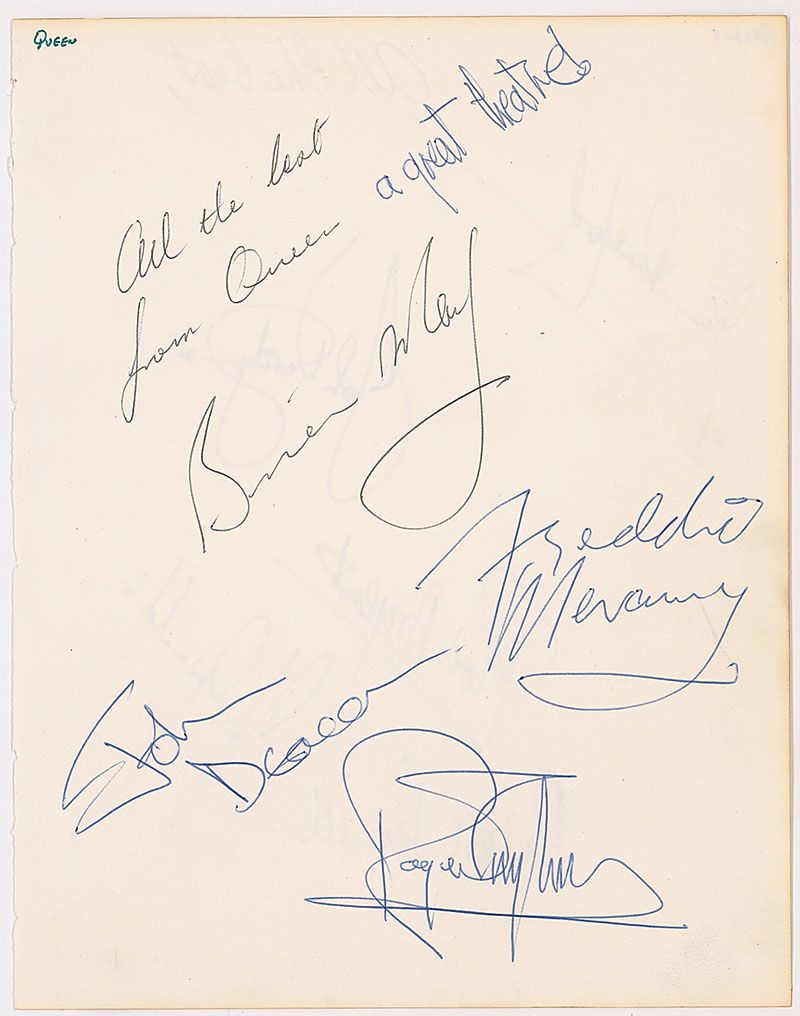 Queen
All the best
from Queen
a great theatre
Brian May
Freddie
Mercury
John
Deacon
Roger Taylor